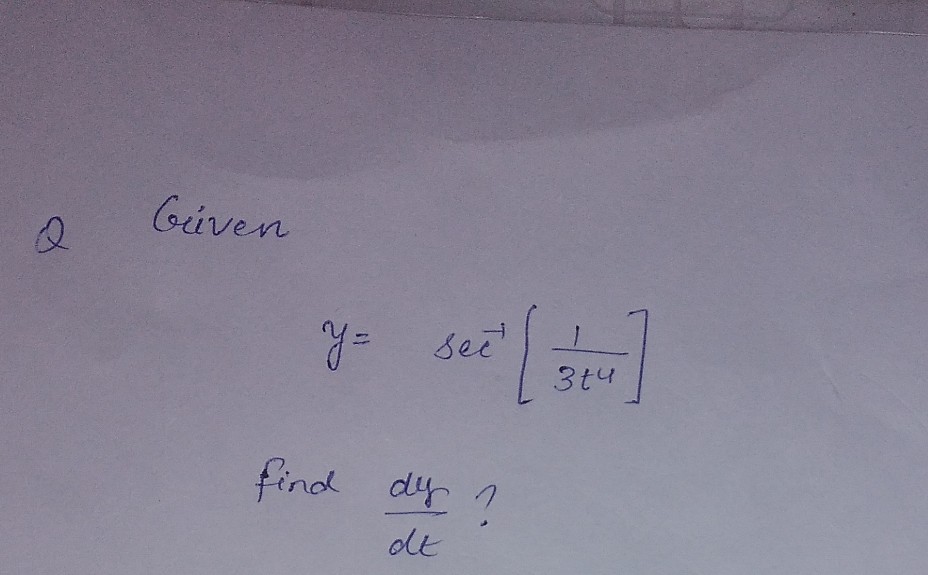 Q Given
y = sec⁻¹ [ 1 / 3t4 ]
find dy/dt ?